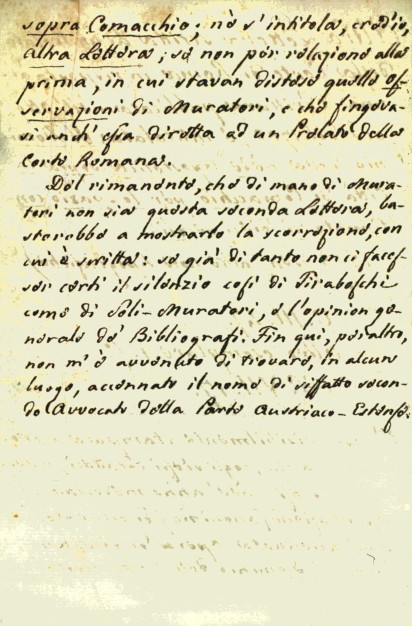 sopra Comacchio; nè s'intitola, cred'io,
altra Lettera; se non per relazione alla
prima, in cui stavan distese quelle os-
servazioni di Muratori, e che fingeva-
si anch' essa diretta ad un Prelato della
Corte Romana.
Del rimanente, che di mano di Mura-
tori non sia questa seconda Lettera, ba-
sterebbe a mostrarlo la scorrezione, con
cui è scritta: se già di tanto non ci faces-
ser certi il silenzio così di Tiraboschi
come di Soli-Muratori, e l'opinion ge-
nerale de' Bibliografi. Fin qui, peraltro,
non m'è avvenuto di trovare, in alcun
luogo, accennato il nome di siffatto secon-
do Avvocato della Parte Austriaco-Estense.